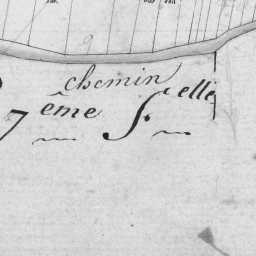 chemin
7ème S.elle